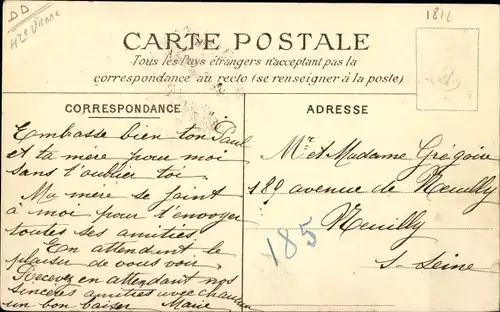 DD
Hte Vienne
1812
CARTE POSTALE
Tous les Pays étrangers n'acceptant pas la
correspondance au recto (se renseigner à la poste)
CORRESPONDANCE
Embrasse bien ton Paul
et ta mère pour moi
sans t'oublier toi.
Ma mère se joint
à moi pour t'envoyer
toutes ses amitiés
En attendant le
plaisir de vous voir
Recevez en attendant nos
sincères amitiés avec chacun
un bon baiser Marie
ADRESSE
Mr et Madame Grégoire
189 avenue de Neuilly
Neuilly
S-Seine
185